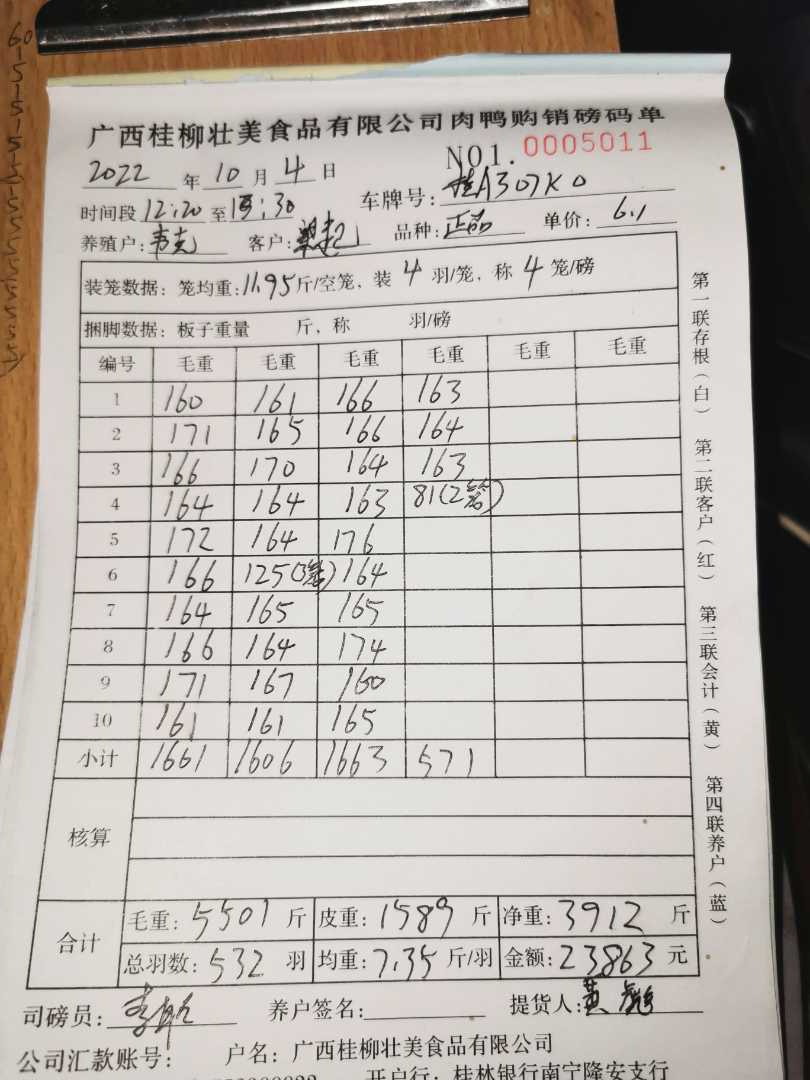 广西桂柳壮美食品有限公司肉鸭购销磅码单
NO1. 0005011
2022 年 10 月 4 日
车牌号: 桂A307K0
时间段 12:20 至 13:30
养殖户: 客户: 品种: 正品 单价: 6.1
装笼数据: 笼均重: 11.95 斤/空笼, 装 4 羽/笼, 称 4 笼/磅
捆脚数据: 板子重量 斤, 称 羽/磅
编号 毛重 毛重 毛重 毛重 毛重 毛重
1 160 161 166 163
2 171 165 166 164
3 166 170 164 163
4 164 164 163 81(2笼)
5 172 164 176
6 166 125(3笼) 164
7 164 165 165
8 166 164 174
9 171 167 160
10 161 161 165
小计 1661 1606 1663 571
核算
合计
毛重: 5501 斤 皮重: 1589 斤 净重: 3912 斤
总羽数: 532 羽 均重: 7.35 斤/羽 金额: 23863 元
司磅员: 养户签名: 提货人: 黄
公司汇款账号: 户名: 广西桂柳壮美食品有限公司
开户行: 桂林银行南宁隆安支行
第一联存根(白) 第二联客户(红) 第三联会计(黄) 第四联养户(蓝)